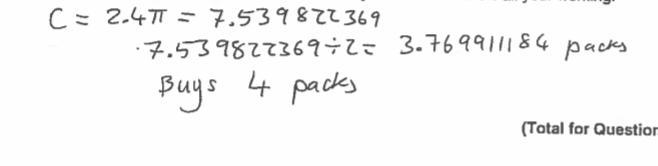 C = 2.4π = 7.539822369
7.539822369÷2= 3.769911184 packs
Buys 4 packs
(Total for Question